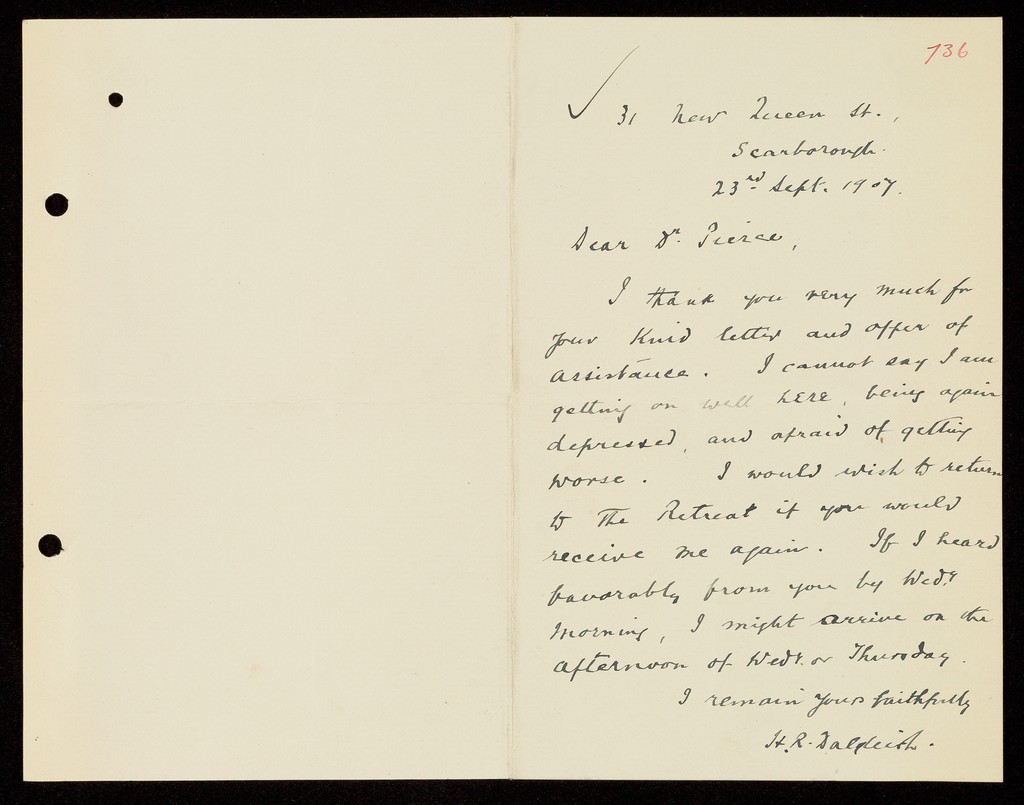 736
31 New Queen St.,
Scarborough.
23rd Sept. 1907.
Dear Dr. Pierce,
I thank you very much for
your kind letter and offer of
assistance. I cannot say I am
getting on well here, being again
depressed, and afraid of getting
worse. I would wish to return
to The Retreat if you would
receive me again. If I heard
favorably from you by Wedy.
Morning, I might arrive on the
afternoon of Wedy. or Thursday.
I remain Yours faithfully
H.R. Dalgleish.